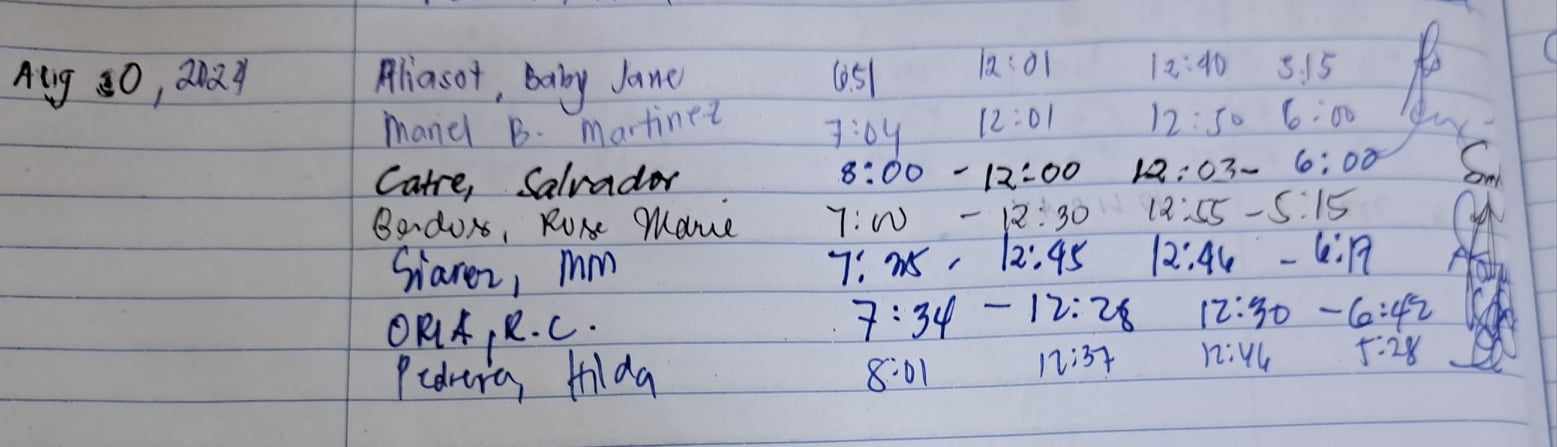 Aug 30, 2024 Aliasot, Baby Jane 6:51 12:01 12:40 5:15
Mariel B. Martinez 7:04 12:01 12:50 6:00
Catre, Salvador 8:00 - 12:00 12:03- 6:00
Rose Marie 7:00 - 12:30 12:55 - 5:15
Siarez, MM 12:45 12:46 - 6:19
ORIA, R.C. 7:34 - 12:28 12:30 - 6:42
Pedrera, Hilda 8:01 12:37 12:46 5:28